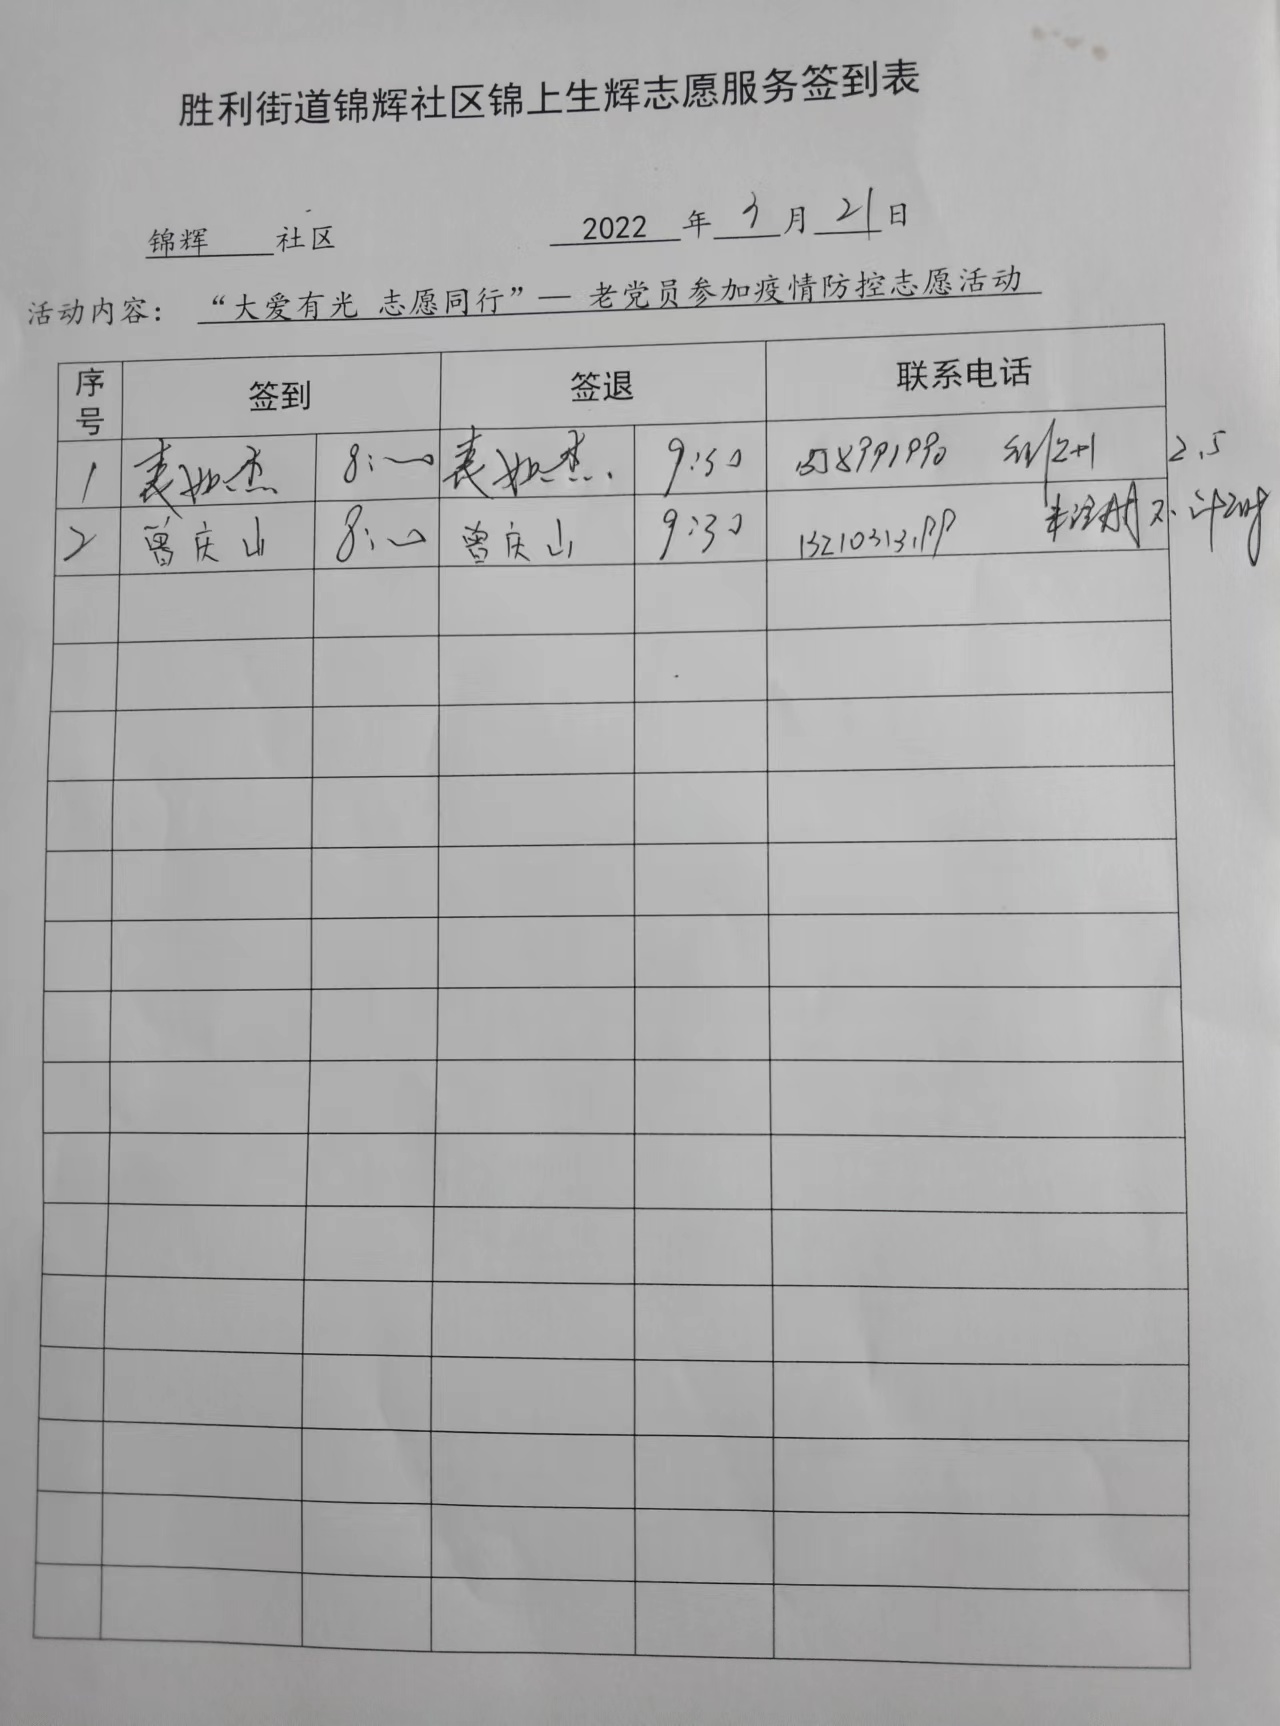 胜利街道锦辉社区锦上生辉志愿服务签到表
锦辉 社区 2022 年 3 月 21 日
活动内容: “大爱有光 志愿同行”— 老党员参加疫情防控志愿活动
序号 签到 签退 联系电话
1 袁如杰 8:00 袁如杰 9:30 2+1 2.5
2 曾庆山 8:00 曾庆山 9:30 未注册 不计时